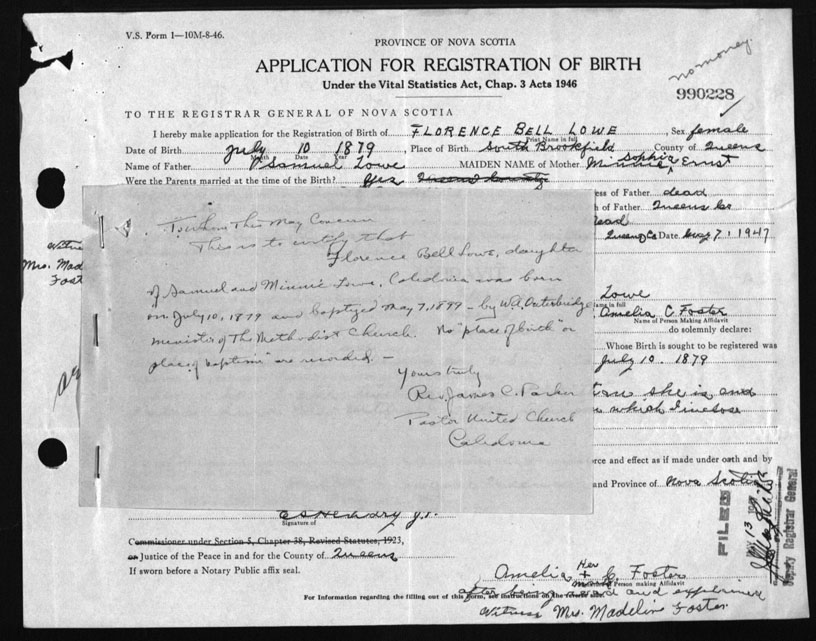 V.S. Form 1—10M-8-46.
PROVINCE OF NOVA SCOTIA
no money.
APPLICATION FOR REGISTRATION OF BIRTH
Under the Vital Statistics Act, Chap. 3 Acts 1946
990228
TO THE REGISTRAR GENERAL OF NOVA SCOTIA
I hereby make application for the Registration of Birth of FLORENCE BELL LOWE, Sex female
Print Name in full
Date of Birth July 10 1879, Place of Birth South Brookfield County of Queens
Month Date Year
Name of Father Samuel Lowe MAIDEN NAME of Mother Minnie Sophia Ernst
Were the Parents married at the time of the Birth? Yes Queens County
ess of Father dead
h of Father Queens Co
dead
Queens Co Date May 7, 1947
Witness
Mrs. Made
Fost
To whom This May Concern
This is to certify that
Florence Bell Lowe, daughter
of Samuel and Minnie Lowe, Caledonia was born
on July 10, 1879 and baptized May 7, 1899 - by W.A. Outerbridge
minister of The Methodist Church. No "place of birth" or
place of baptism" are recorded -
Yours truly
Rev. James C. Parker
Pastor United Church
Caledonia
Lowe
ame in full
Amelia C Foster
Name of Person Making Affidavit
do solemnly declare:
Whose Birth is sought to be registered was
July 10. 1879
she is and
n which I
orce and effect as if made under oath and by
and Province of Nova Scotia
Signature of
Commissioner under Section 5, Chapter 38, Revised Statutes, 1923,
or Justice of the Peace in and for the County of Queens
If sworn before a Notary Public affix seal.
FILED
13
Deputy Registrar General
Her
Amelia + C. Foster
mark
Person making Affidavit
For Information regarding the filling out of this Form, see instructions on the reverse side.
after being read and explained
Witness Mrs. Madeline Foster.